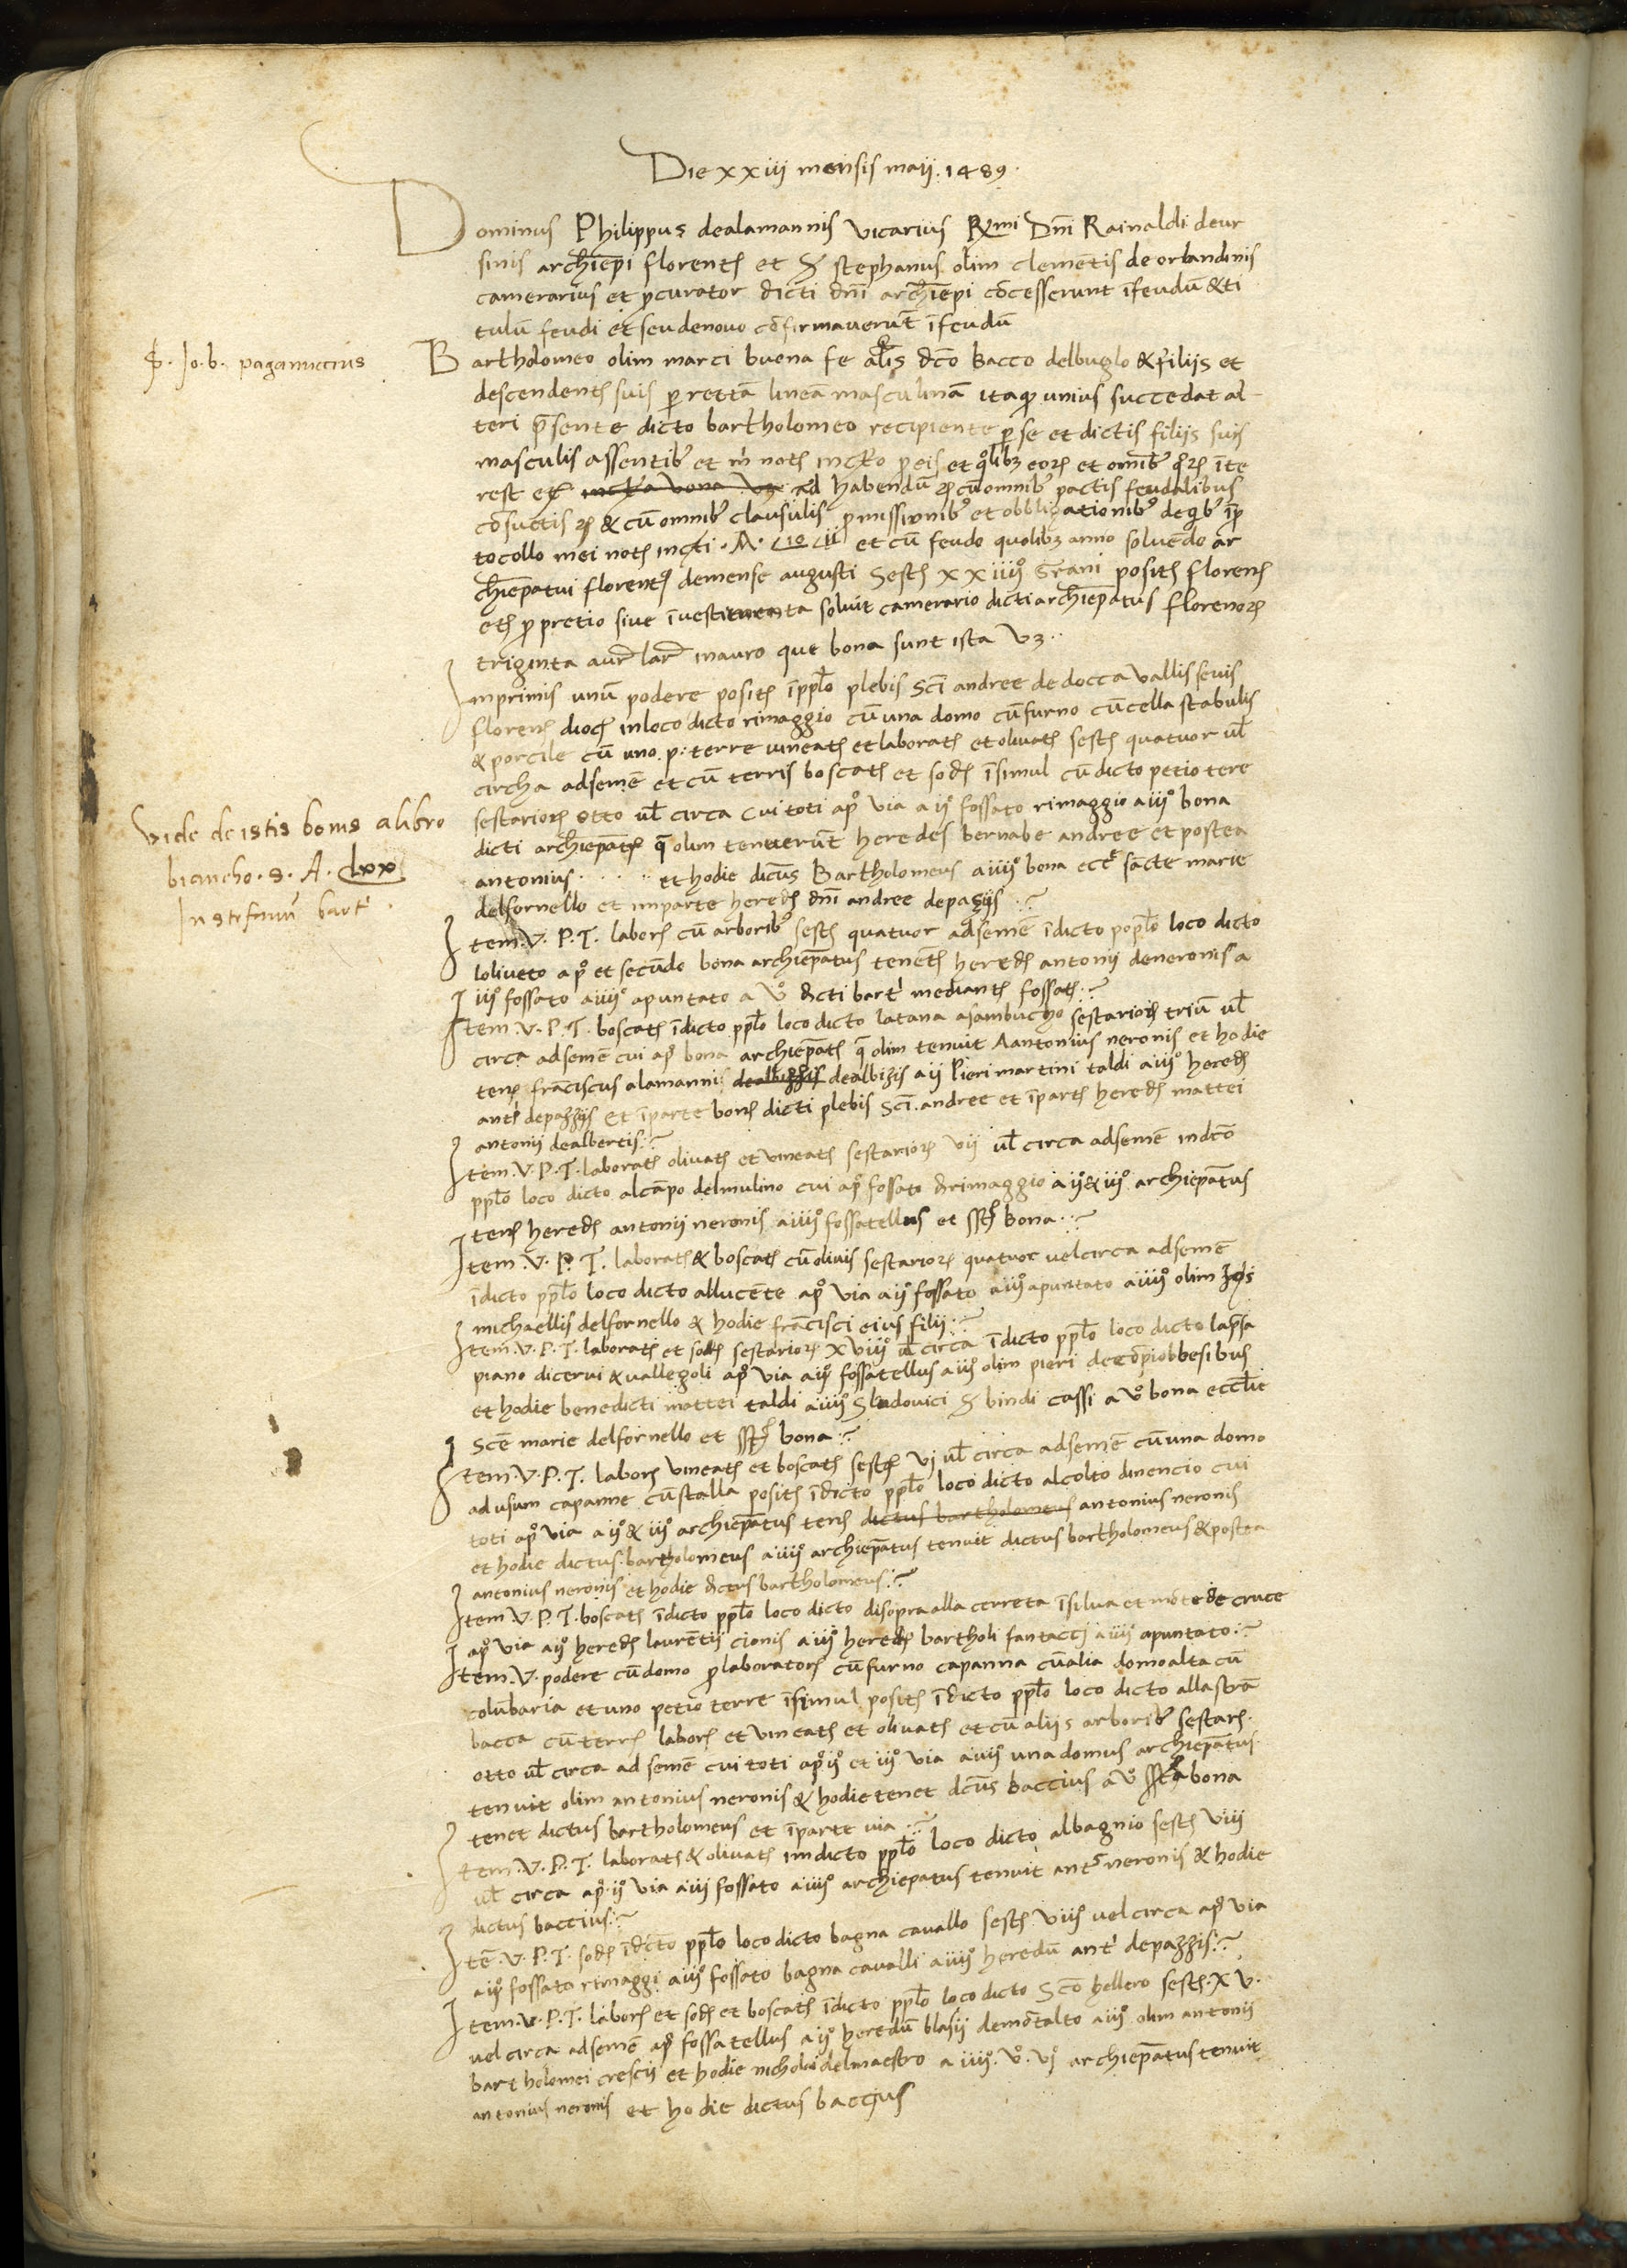 Die xxiij mensis maij . 1489 .
Dominus Philippus dealamannis vicarius Rmi Dni Rainaldi deur
sinis archiepi florent et S stephanus olim clementis de orlandinis
camerarius et pcurator dicti dni archiepi concesserunt ifeudu & ti
tulu feudi et seu denovo confirmaverut ifeudu
S. Jo. b. paganuccius
Bartholomeo olim marci buona fe als dco Bacco delbuglo & filijs et
descendent suis p retta linea masculina itaq unius succedat al
teri psente dicto bartholomeo recipiente p se et dictis filijs suis
masculis assentib et m not p eis et qlibz eor et omib qr ite
rest et ad habendu cu omnib pactis feudalibus
consuetis & cu omnib clausulis pmissionib et obbligationib de qib i p
tocollo mei not . A . et cu feudo quolibz anno solvendo ar
chiepatui florent demense augusti Sest xxiiijo Grani posit floren
et p pretio sive investimenta soluit camerario dicti archiepatus florenor
triginta aur lar inauro que bona sunt ista vz ..
Inprimis unu podere posit ipplo plebis Sci andree de docca vallis sevis
floren dioc inloco dicto rimaggio cu una domo cu furno cu cella stabulis
& porcile cu uno . p : terre vineat et laborat et olivat sest quatuor vl
circha adseme et cu terris boscat et sod isimul cu dicto petio tere
sestarior otto vl circa cui toti apo via a ijo fossato rimaggio a iijo bona
dicti archiepat q olim tenuerut heredes bernabe andree et postea
antonius . . . . . et hodie dicus Bartholomeus a iiijo bona ecce sancte marie
delfornello et inparte hered dni andree depazijs . ~
vide de istis bonis alibro
biancho . S . A . lxx
Item . V . P . T . labor cu arborib sest quatuor adseme idicto popplo loco dicto
loliveto apo et secundo bona archiepatus tenet hered antonij deneronis a
iijo fossato a iiijo apuntato a vo dicti bart mediant fossat . ~
Item . V . P . T . boscat idicto pplo loco dicto latana asambucho sestarior triu vl
circa adseme cui apo bona archiepat q olim tenuit Aantonius neronis et hodie
ten fraciscus alamannis dealbizis dealbizis a ij Pieri martini taldi a iijo hered
ant depazzijs et iparte bon dicti plebis Sci . andree et ipart hered mattei
antonij dealbertis . ~
Item . V . P . T . laborat olivat et vineat sestarior vij vl circa adseme indco
pplo loco dicto alcapo delmulino cui apo fossato drimaggio a ijo & iijo archiepatus
ten hered antonij neronis a iiijo fossatellus et bona . ~
Item . V . P . T . laborat & boscat cu olivis sestarior quatuor vel circa adseme
idicto pplo loco dicto allucente apo via a ijo fossato a iijo apuntato a iiijo olim
michaellis delfornello & hodie francisci eius filij . ~
Item . V . P . T . laborat et sod sestarior xviijo vl circa idicto pplo loco dicto
piano dicervi & vallegoli apo via a ijo fossatellus a iijo olim pieri
et hodie benedicti mattei taldi a iiijo S ludovici S bindi cassi a vo bona ecclie
Sce marie delfornello et bona . ~
Item . V . P . T . labor vineat et boscat sest vj vl circa adseme cu una domo
ad usum capanne cu stalla posit idicto pplo loco dicto alcolto dinencio cui
toti apo via a ijo & iijo archiepatus ten dictus bartholomeus antonius neronis
et hodie dictus bartholomeus a iiijo archiepatus tenuit dictus bartholomeus & postea
antonius neronis et hodie dictus bartholomeus . ~
Item V . P . T . boscat idicto pplo loco dicto disopra alla cerreta isilva et mote de cruce
apo via a ijo hered laurentij cionis a iijo hered bartholi fantacci a iiijo apuntato . ~
Item . V . podere cu domo p laborator cu furno capanna cu alia domo alta cu
columbaria et uno petio terre isimul posit idicto pplo loco dicto allastra
bacca cu terr labor et vineat et olivat et cu alijs arborib sestar .
otto vl circa ad seme cui toti apo ijo et iijo via a iiijo una domus archiepatus
tenuit olim antonius neronis & hodie tenet dcus baccius a vo bona
tenet dictus bartholomeus et iparte via . ~
Item . V . P . T . laborat & olivat indicto pplo loco dicto albagnio sest viij
vl circa apo ijo via a iij fossato a iiijo archiepatus tenuit anto neronis & hodie
dictus baccius . ~
Ite . V . P . T . sod idicto pplo loco dicto bagna cavallo sest viijo vel circa apo via
a ijo fossato rimaggi a iijo fossato bagna cavalli a iiijo heredu ant depazzis . ~
Item . V . P . T . labor et sod et boscat idicto pplo loco dicto Sco hellero sest . xv .
vel circa adseme apo fossatellus a ijo heredu blasij demotalto a iijo olim antonij
bartholomei crescij et hodie nicholai delmaestro a iiijo . vo . vjo archiepatus tenuit
antonius neronis et hodie dictus baccius